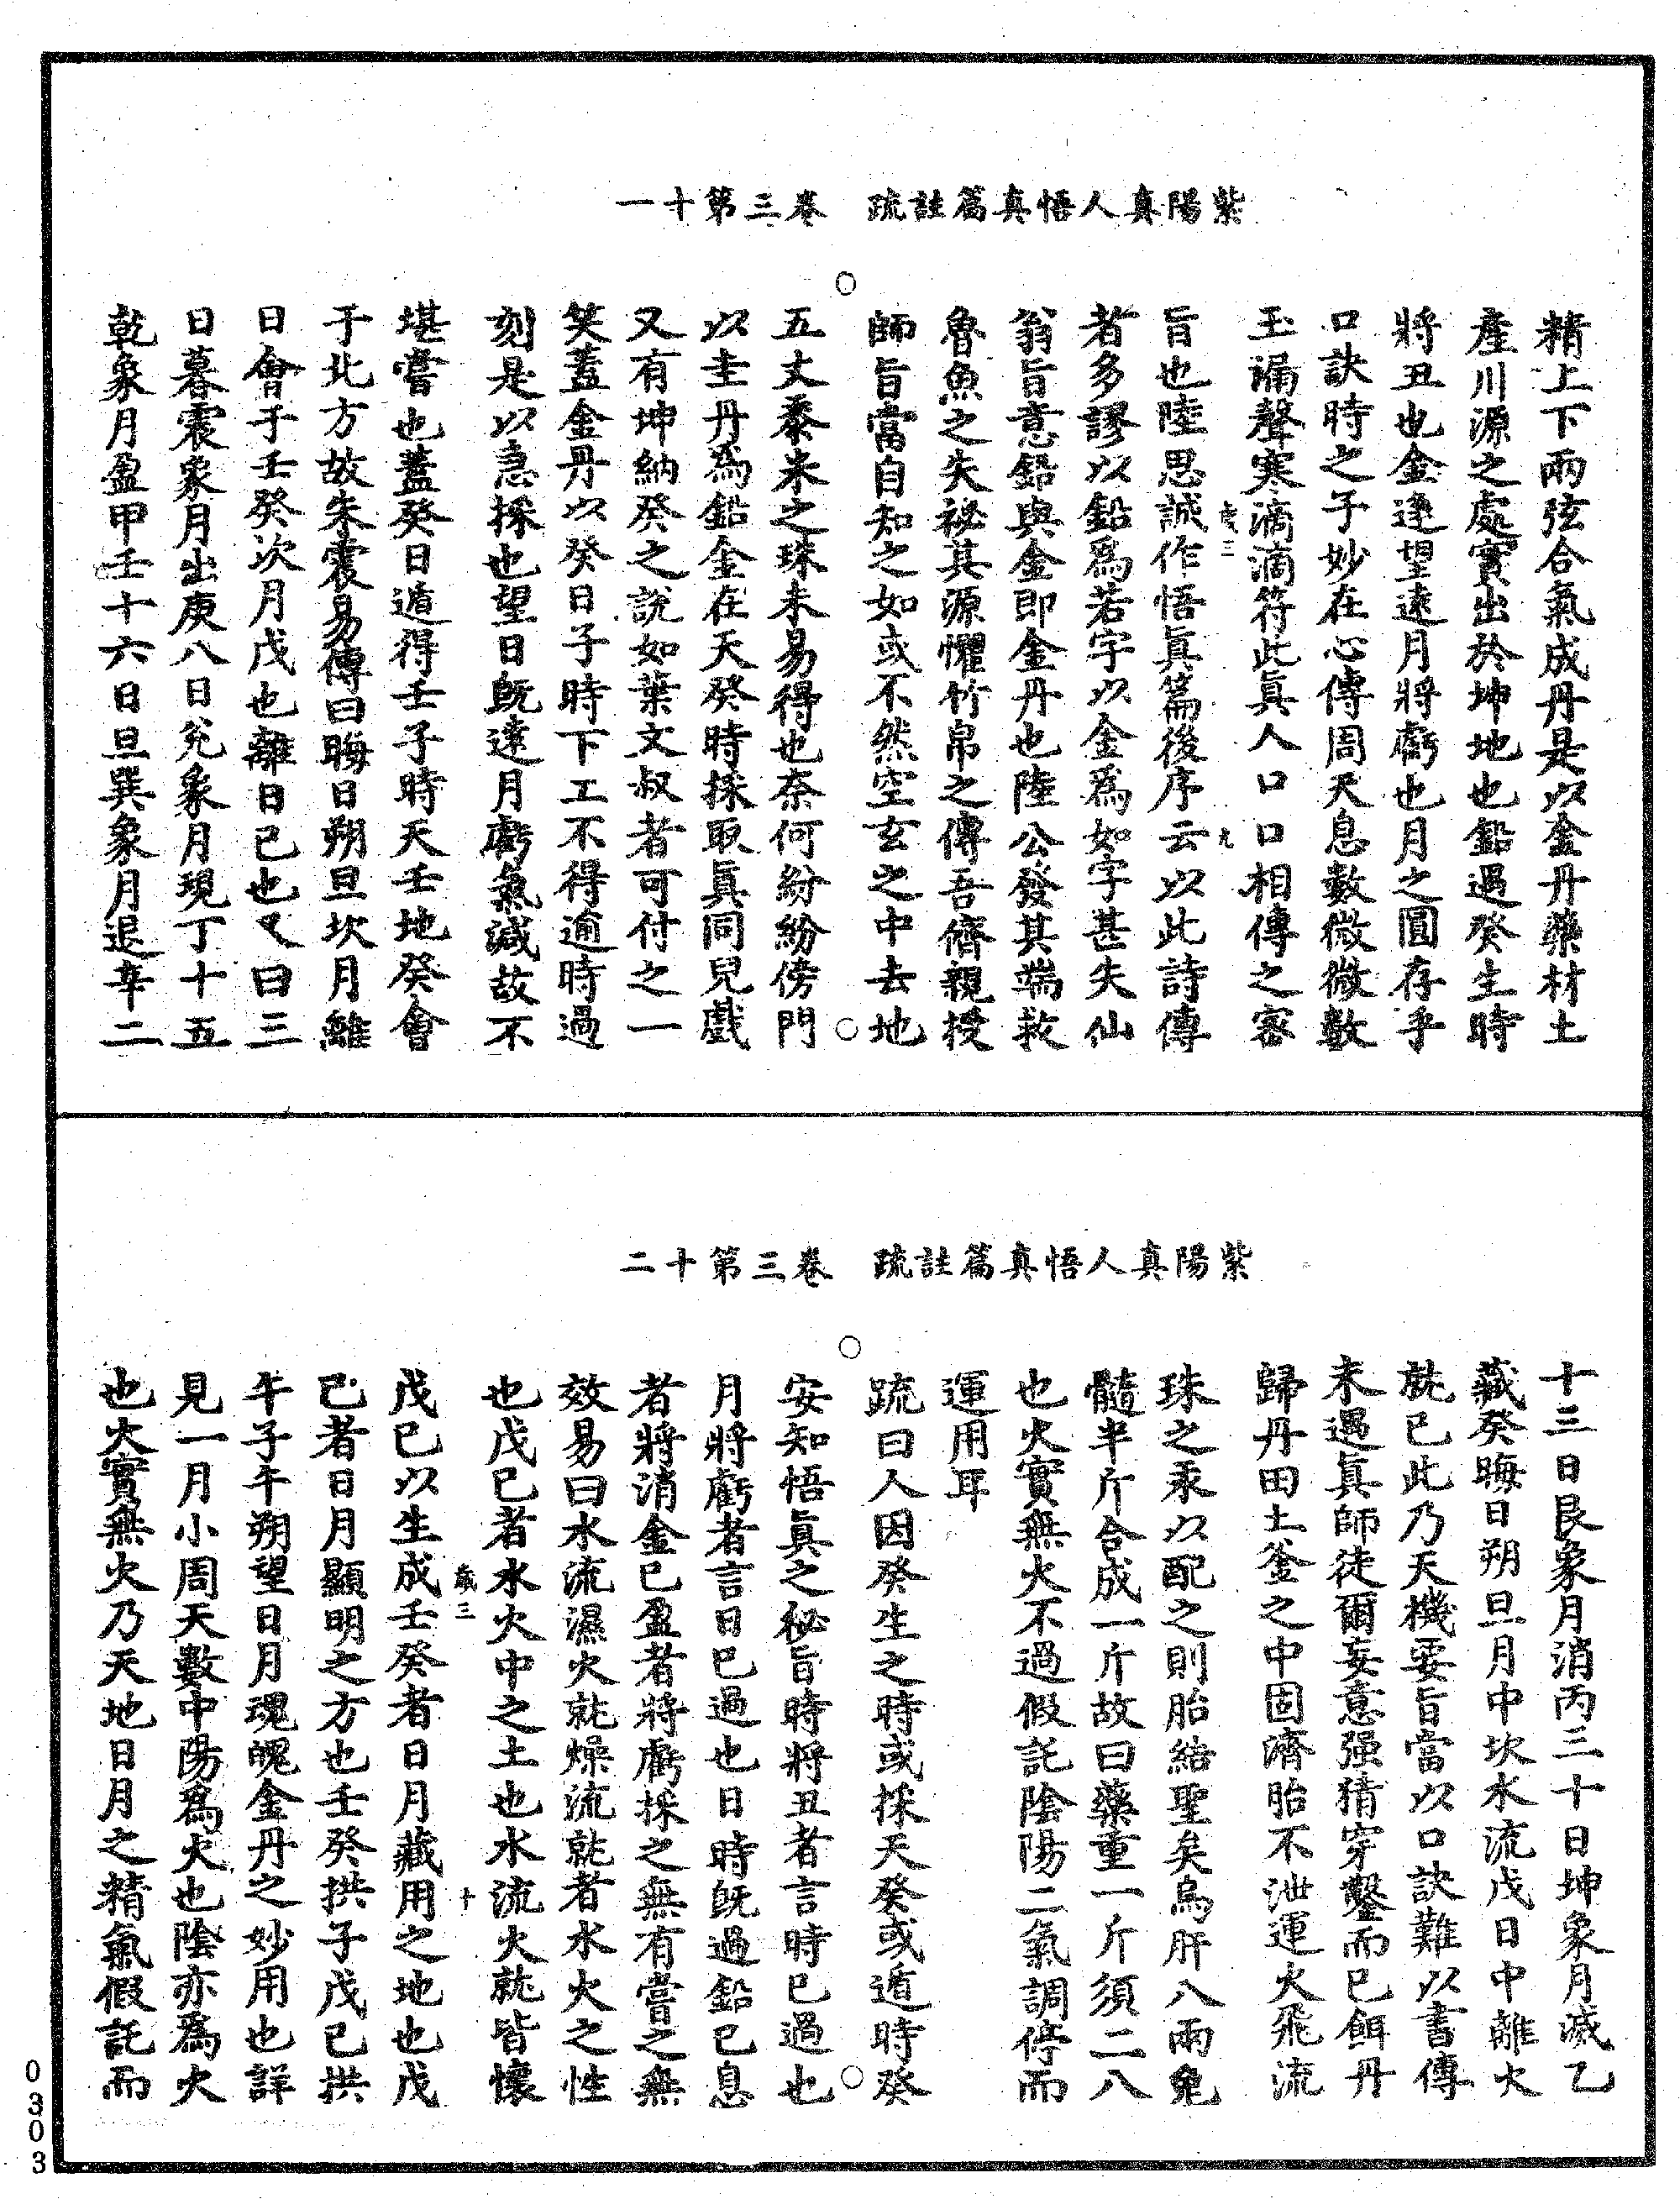 紫陽真人悟真篇註疏 卷三第十一
精上下兩弦合氣成丹是以金丹藥材土
產川源之處實出於坤地也鉛遇癸生時
將丑也金逢望遠月將虧也月之圓存乎
口訣時之子妙在心傳周天息數微微數
玉漏聲寒滴滴符此眞人口口相傳之密
旨也陸思誠作悟眞篇後序云以此詩傳
歲三 九
者多謬以鉛爲若字以金爲如字甚失仙
翁旨意鉛與金即金丹也陸公發其端救
魯魚之失祕其源懼竹帛之傳吾儕親授
師旨當自知之如或不然空玄之中去地
五丈黍米之珠未易得也奈何紛紛傍門
以圭丹爲鉛金在天癸時採取眞同兒戲
又有坤納癸之說如葉文叔者可付之一
笑蓋金丹以癸日子時下工不得逾時過
刻是以急採也望日旣遠月虧氣減故不
堪嘗也蓋癸日遁得壬子時天壬地癸會
于北方故朱震易傳曰晦日朔旦坎月離
日會于壬癸次月戊也離日已也又曰三
日暮震象月出庚八日兊象月現丁十五
乾象月盈甲壬十六日旦巽象月退辛二
紫陽真人悟真篇註疏 卷三第十二
十三日艮象月消丙三十日坤象月滅乙
藏癸晦日朔旦月中坎水流戊日中離火
就已此乃天機要旨當以口訣難以書傳
未遇眞師徒爾妄意强猜穿鑿而已餌丹
歸丹田土釜之中固濟胎不泄運火飛流
珠之汞以配之則胎結聖矣烏肝八兩兔
髓半斤合成一斤故曰藥重一斤須二八
也火實無火不過假託陰陽二氣調停而
運用耳
疏曰人因癸生之時或採天癸或遁時癸
安知悟眞之秘旨時將丑者言時已過也
月將虧者言日已過也日時旣過鉛已息
者將消金已盈者將虧採之無有嘗之無
效易曰水流濕火就燥流就者水火之性
也戊已者水火中之土也水流火就皆懷
戊已以生成壬癸者日月藏用之地也戊
歲三 十
已者日月顯明之方也壬癸拱子戊已拱
午子午朔望日月魂魄金丹之妙用也詳
見一月小周天數中陽爲火也陰亦爲火
也火實無火乃天地日月之精氣假託而
0303